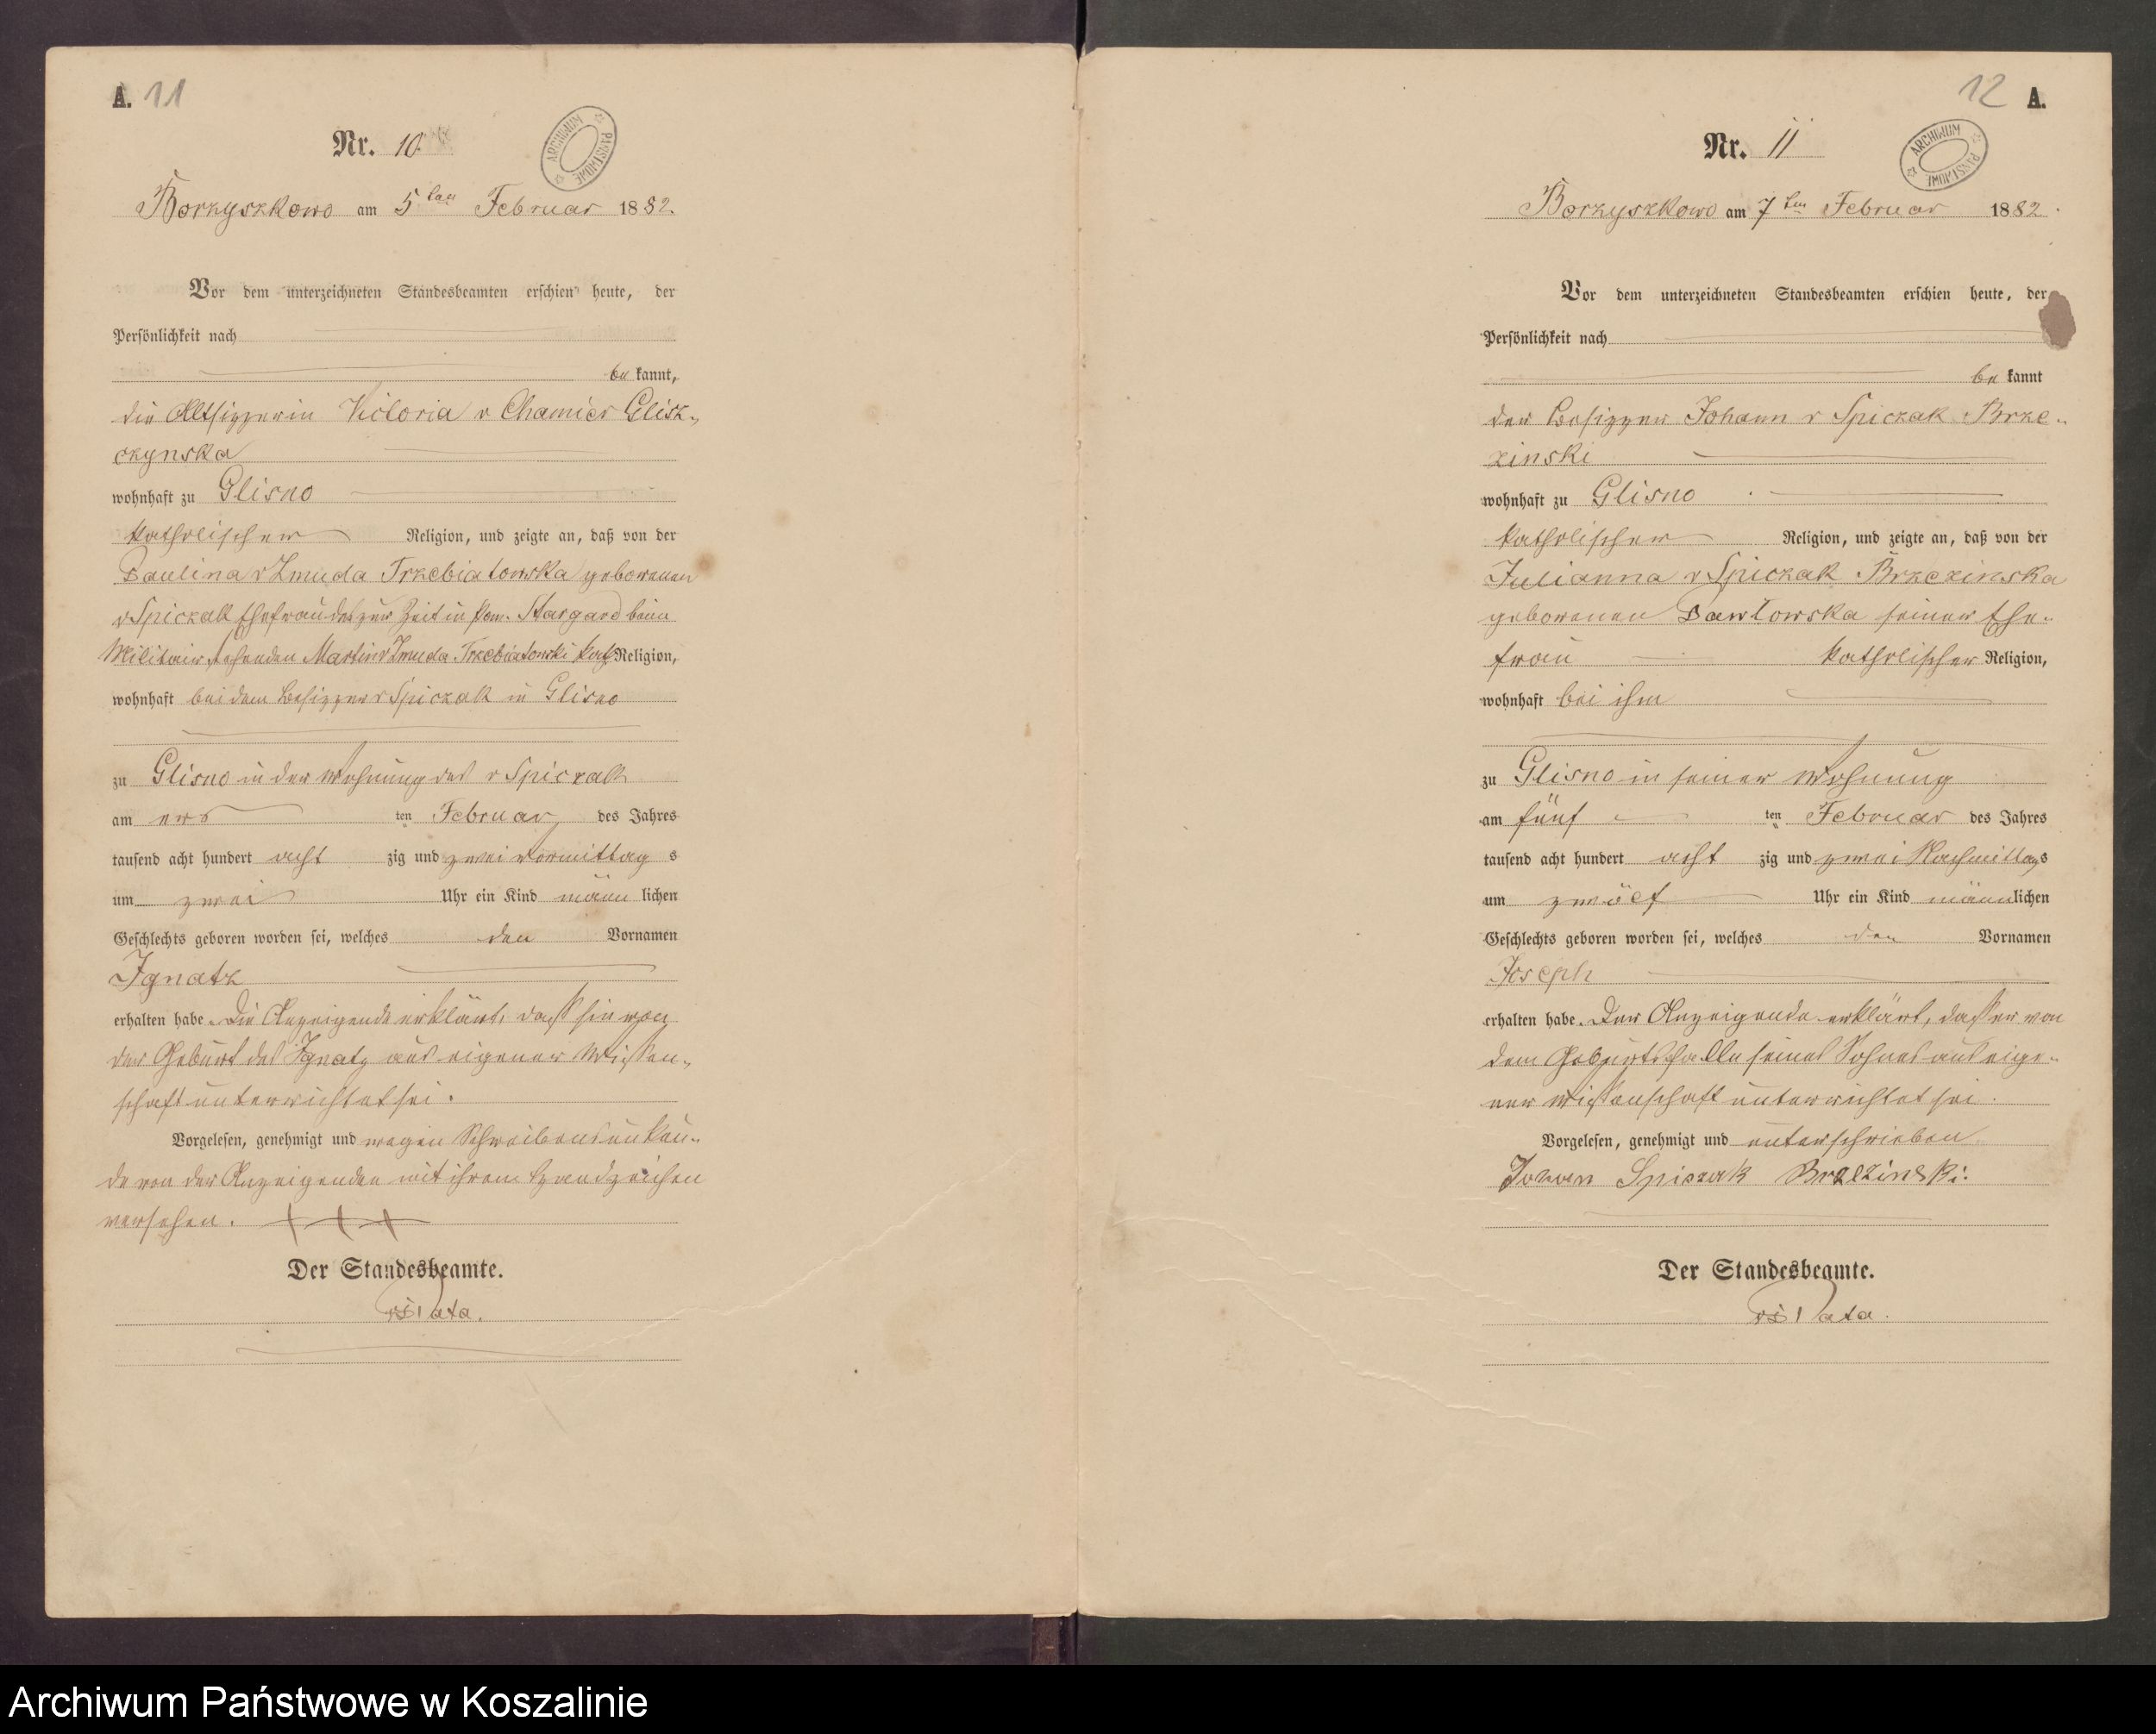 A. 11
Nr. 10
ARCHIWUM PAŃSTWOWE
Borzyszkowo am 5ten Februar 1882.
Vor dem unterzeichneten Standesbeamten erschien heute, der
Persönlichkeit nach
be kannt,
die Altsitzerin Victoria v Chamier Glisz-
czynska
wohnhaft zu Glisno
katholischer Religion, und zeigte an, daß von der
Paulina v Zmuda Trzebiatowska geborenen
v Spiczak Ehefrau des zur Zeit in Pom. Stargard beim
Militair stehenden Martin v Zmuda Trzebiatowski kath Religion,
wohnhaft bei dem Besitzer v Spiczak in Glisno
zu Glisno in der Wohnung des v Spiczak
am ers ten Februar des Jahres
tausend acht hundert acht zig und zwei Vormittag s
um zwei Uhr ein Kind männ lichen
Geschlechts geboren worden sei, welches den Vornamen
Ignatz
erhalten habe. Die Anzeigende erklärt, daß sie von
der Geburt des Ignatz aus eigener Wissen-
schaft unterrichtet sei.
Vorgelesen, genehmigt und wegen Schreibensunkun-
de von der Anzeigenden mit ihrem Handzeichen
versehen. + + +
Der Standesbeamte.
12 A.
Nr. 11
ARCHIWUM PAŃSTWOWE
Borzyszkowo am 7ten Februar 1882.
Vor dem unterzeichneten Standesbeamten erschien heute, der
Persönlichkeit nach
be kannt
der Besitzer Johann v Spiczak Brze-
zinski
wohnhaft zu Glisno
katholischer Religion, und zeigte an, daß von der
Julianna v Spiczak Brzezinska
geborenen Pawlowska seiner Ehe-
frau katholischer Religion,
wohnhaft bei ihm
zu Glisno in seiner Wohnung
am fünf ten Februar des Jahres
tausend acht hundert acht zig und zwei Nachmittags
um zwölf Uhr ein Kind männlichen
Geschlechts geboren worden sei, welches den Vornamen
Joseph
erhalten habe. Der Anzeigende erklärt, daß er von
dem Geburtsfalle seines Sohnes aus eige-
ner Wissenschaft unterrichtet sei.
Vorgelesen, genehmigt und unterschrieben
Johan Spiczak Brzezinski.
Der Standesbeamte.
Archiwum Państwowe w Koszalinie